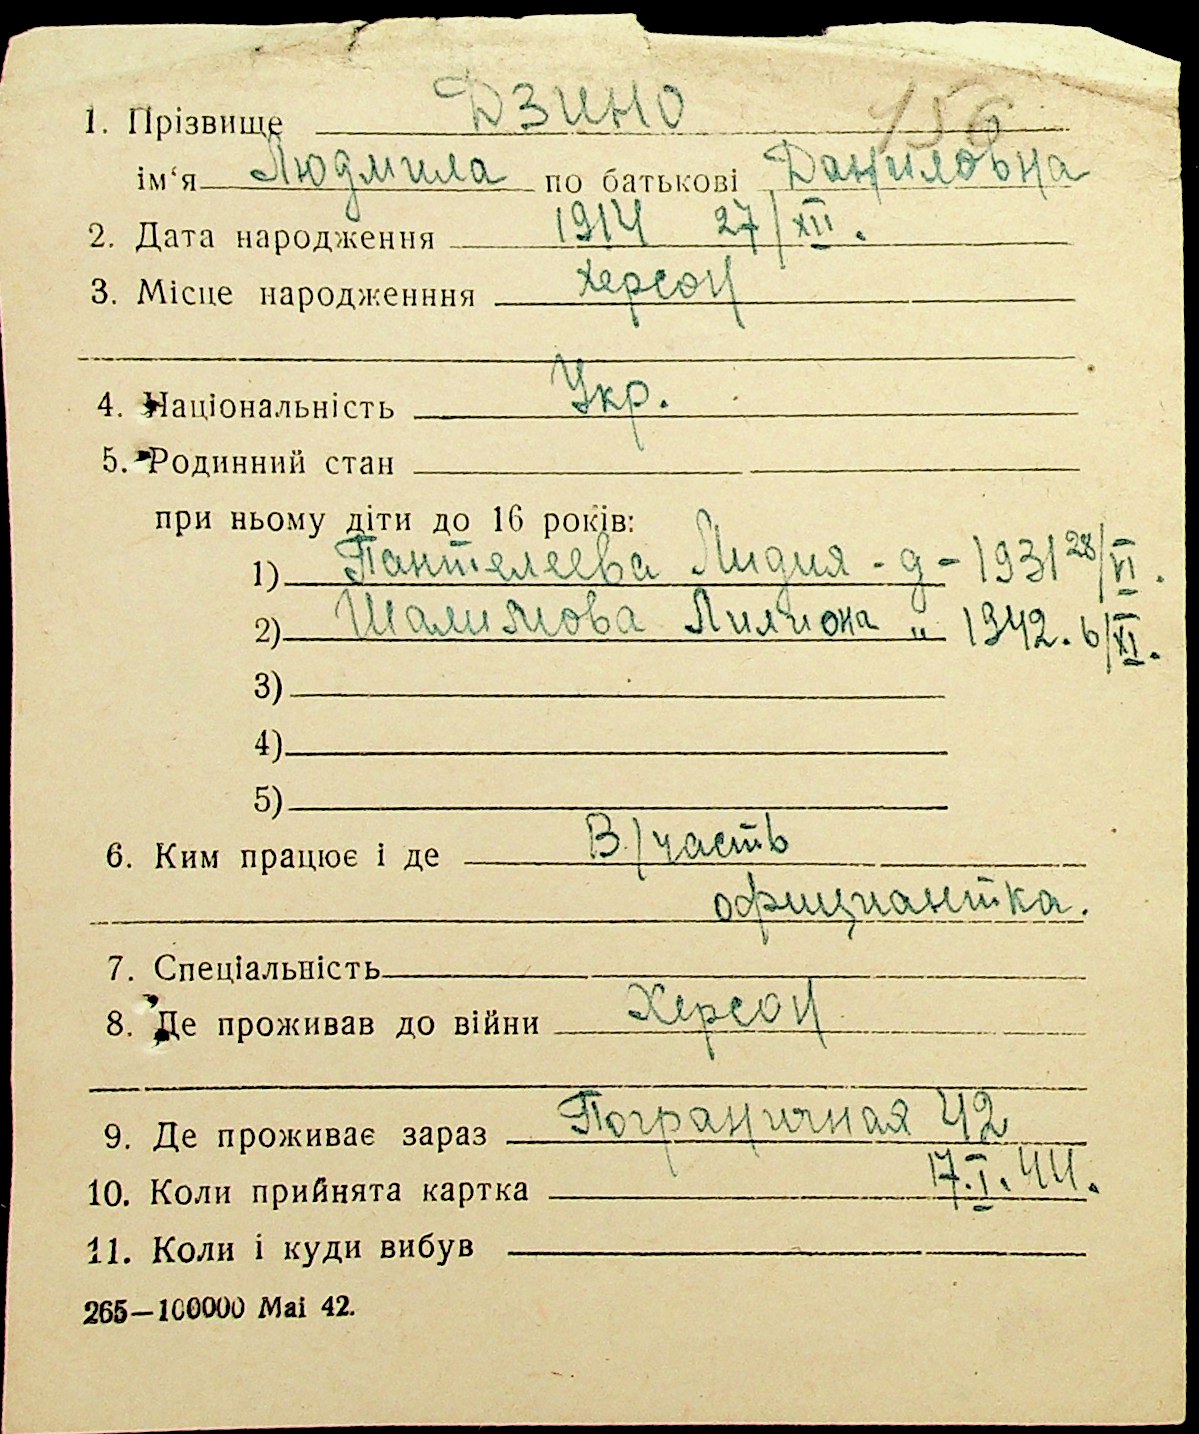 156
1. Прізвище Дзино
ім‘я Людмила по батькові Даниловна
2. Дата народження 1914 27/XII.
3. Місце народженння Херсон
4. Національність Укр.
5. Родинний стан
при ньому діти до 16 років:
1) Пантелеева Лидия - д - 1931 28/VI.
2) Шалимова Лилиона " 1942. 6/XI.
3)
4)
5)
6. Ким працює і де В/часть
официантка.
7. Спеціальність
8. Де проживав до війни Херсон
9. Де проживає зараз Пограничная 42
10. Коли прийнята картка 17.I.44.
11. Коли і куди вибув
265—100000 Mai 42.